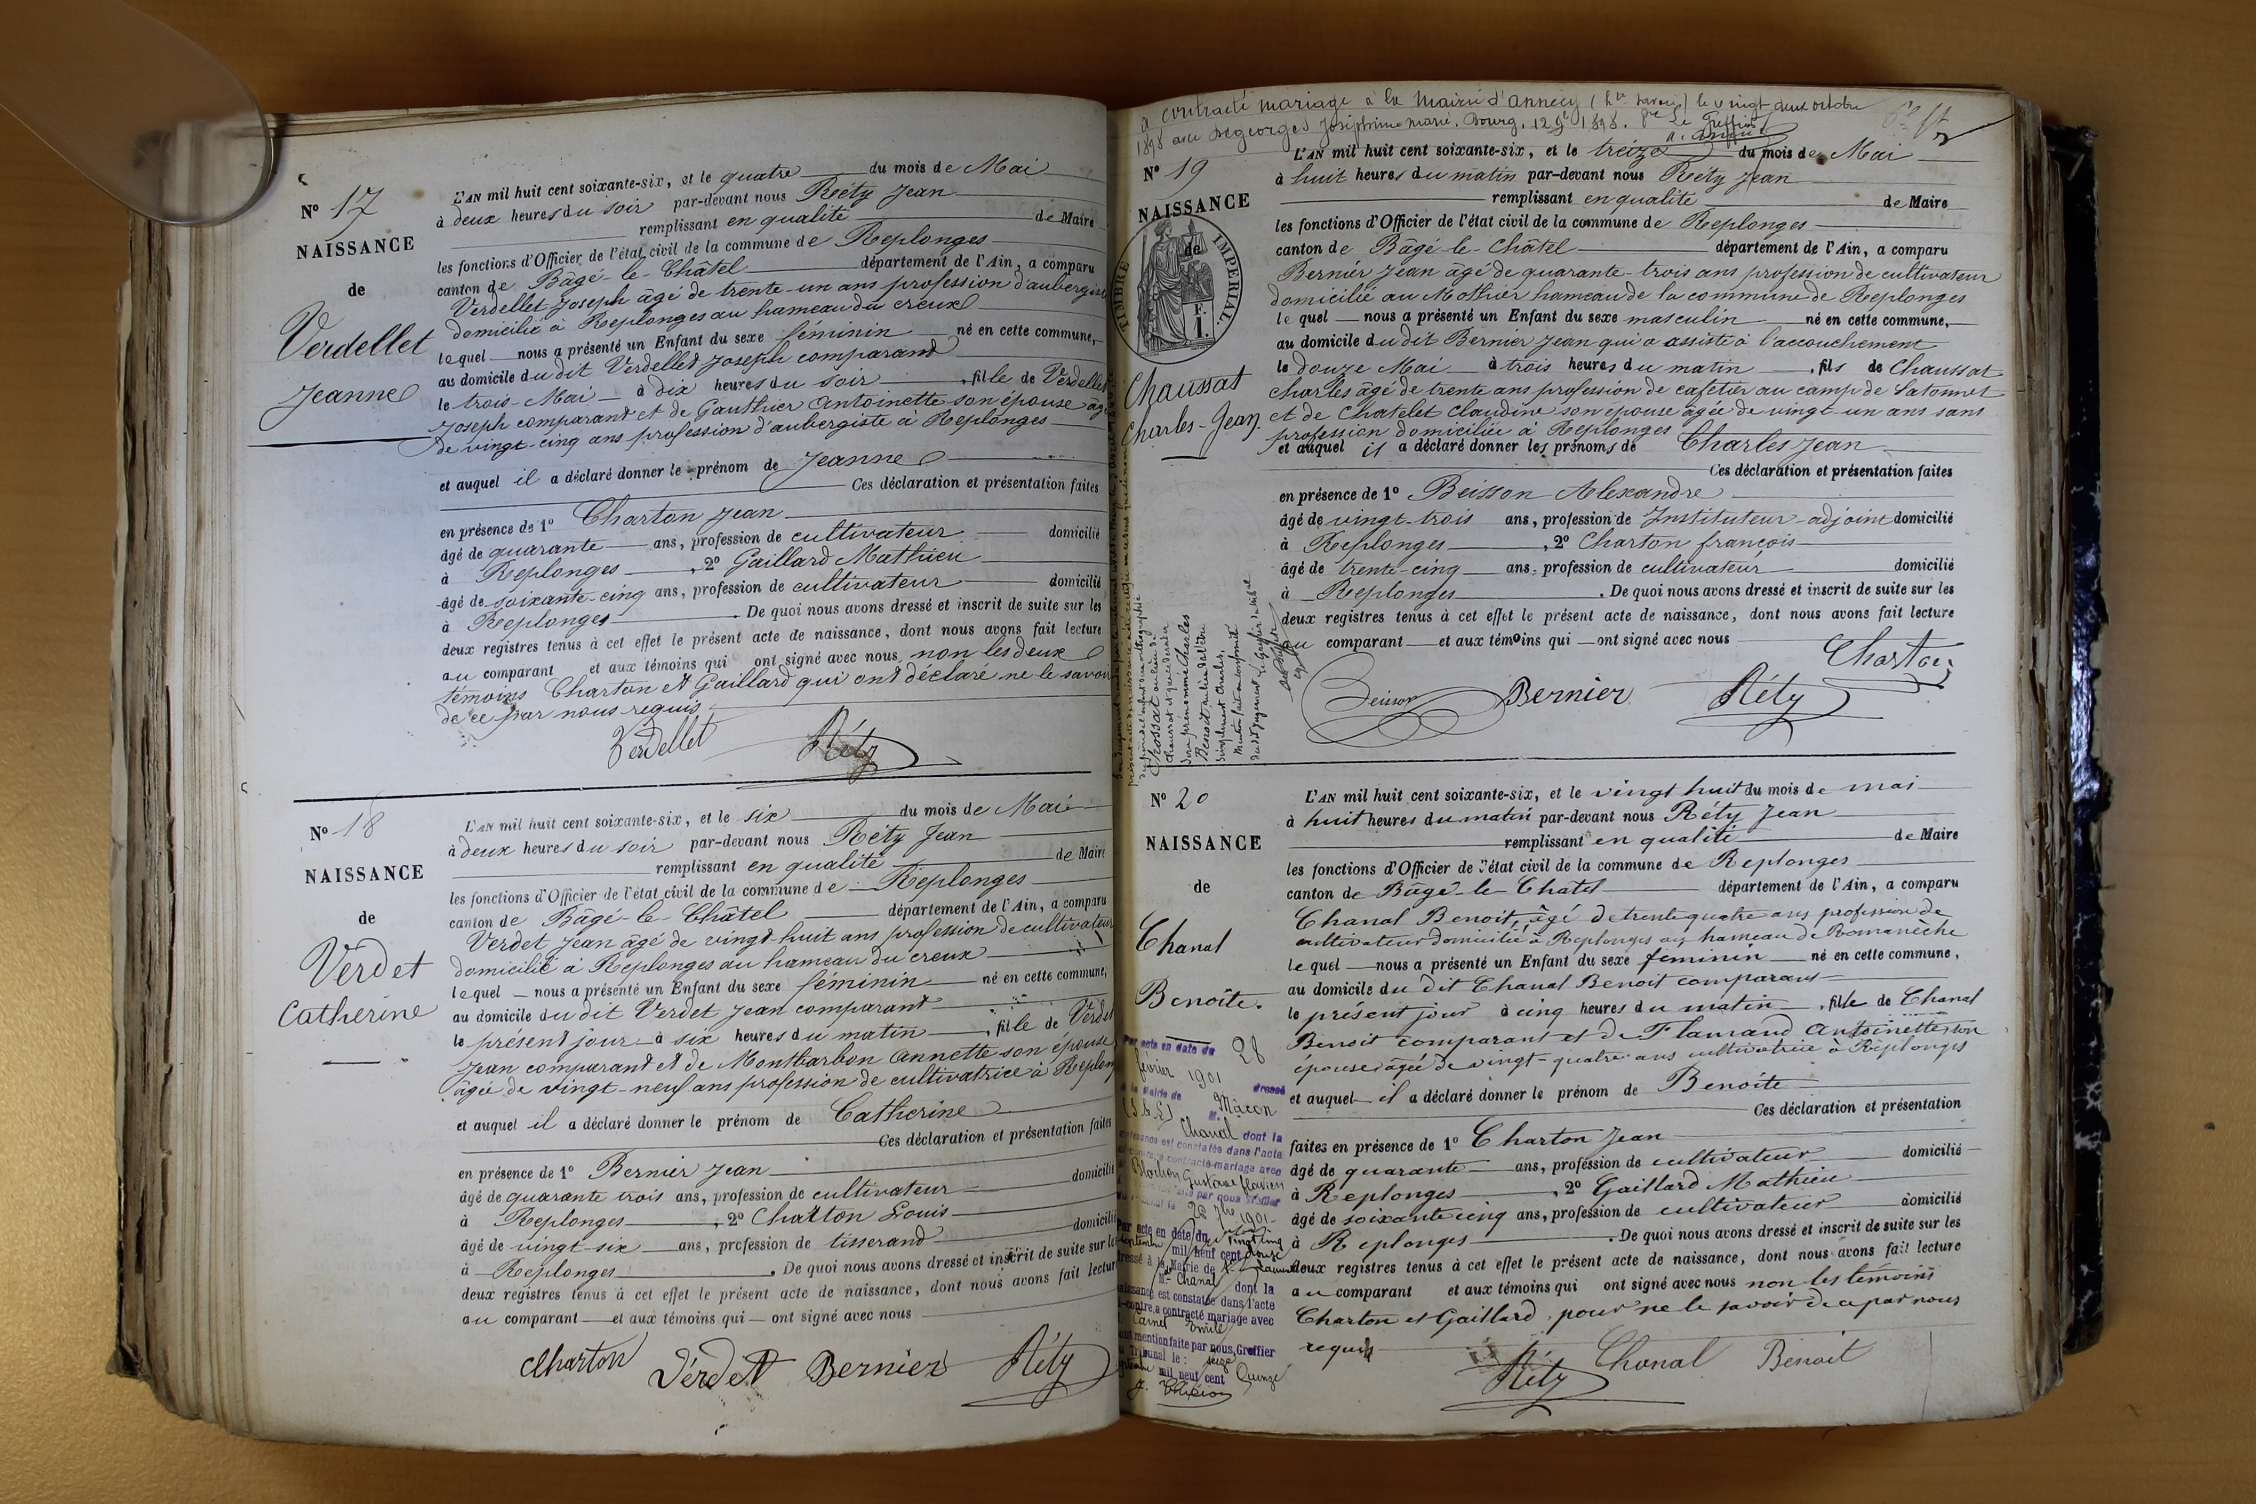 N° 17
NAISSANCE
de
Verdellet
Jeanne
L'AN mil huit cent soixante-six, et le quatre du mois de Mai
à deux heures du soir par-devant nous Réty Jean
remplissant en qualité de Maire
les fonctions d'Officier de l'état civil de la commune de Replonges
canton de Bâgé-le-Châtel département de l'Ain, a comparu
Verdellet Joseph âgé de trente-un ans profession d'aubergiste
domicilié à Replonges au hameau du creux
lequel nous a présenté un Enfant du sexe féminin né en cette commune,
au domicile du dit Verdellet Joseph comparant
le trois Mai à dix heures du soir, fille de Verdellet
Joseph comparant et de Gauthier Antoinette son épouse âgée
de vingt-cinq ans profession d'aubergiste à Replonges
et auquel il a déclaré donner le prénom de Jeanne
Ces déclaration et présentation faites
en présence de 1° Charton Jean
âgé de quarante ans, profession de cultivateur domicilié
à Replonges, 2° Gaillard Mathieu
âgé de soixante-cinq ans, profession de cultivateur domicilié
à Replonges. De quoi nous avons dressé et inscrit de suite sur les
deux registres tenus à cet effet le présent acte de naissance, dont nous avons fait lecture
au comparant et aux témoins qui ont signé avec nous non les deux
témoins Charton et Gaillard qui ont déclaré ne le savoir
de ce par nous requis
Verdellet Réty
N° 18
NAISSANCE
de
Verdet
Catherine
L'AN mil huit cent soixante-six, et le six du mois de Mai
à deux heures du soir par-devant nous Réty Jean
remplissant en qualité de Maire
les fonctions d'Officier de l'état civil de la commune de Replonges
canton de Bâgé-le-Châtel département de l'Ain, a comparu
Verdet Jean âgé de vingt-huit ans profession de cultivateur
domicilié à Replonges au hameau du creux
lequel nous a présenté un Enfant du sexe féminin né en cette commune,
au domicile du dit Verdet Jean comparant
le présent jour à six heures du matin, fille de Verdet
Jean comparant et de Montbarbon Annette son épouse
âgée de vingt-neuf ans profession de cultivatrice à Replonges
et auquel il a déclaré donner le prénom de Catherine
Ces déclaration et présentation faites
en présence de 1° Bernier Jean
âgé de quarante trois ans, profession de cultivateur domicilié
à Replonges, 2° Charton Louis
âgé de vingt-six ans, profession de tisserand domicilié
à Replonges. De quoi nous avons dressé et inscrit de suite sur les
deux registres tenus à cet effet le présent acte de naissance, dont nous avons fait lecture
au comparant et aux témoins qui ont signé avec nous
Charton Verdet Bernier Réty
a contracté mariage à la Mairie d'Annecy (hte Savoie) le vingt deux octobre
1898 avec Degeorges Joséphine Marie. Bourg, 12 1898. Le Greffier
N° 19
NAISSANCE
de
TIMBRE IMPERIAL
F.
1.
Chaussat
Charles-Jean
L'AN mil huit cent soixante-six, et le treize du mois de Mai
à huit heures du matin par-devant nous Réty Jean
remplissant en qualité de Maire
les fonctions d'Officier de l'état civil de la commune de Replonges
canton de Bâgé-le-Châtel département de l'Ain, a comparu
Bernier Jean âgé de quarante-trois ans profession de cultivateur
domicilié au Mothier hameau de la commune de Replonges
lequel nous a présenté un Enfant du sexe masculin né en cette commune,
au domicile du dit Bernier Jean qui a assisté à l'accouchement
le douze Mai à trois heures du matin, fils de Chaussat
Charles âgé de trente ans profession de cafetier au camp de Satonnet
et de Chatelet Claudine son épouse âgée de vingt-un ans sans
profession domiciliée à Replonges
et auquel il a déclaré donner les prénoms de Charles Jean
Ces déclaration et présentation faites
en présence de 1° Beisson Alexandre
âgé de vingt-trois ans, profession de Instituteur-adjoint domicilié
à Replonges, 2° Charton françois
âgé de trente-cinq ans, profession de cultivateur domicilié
à Replonges. De quoi nous avons dressé et inscrit de suite sur les
deux registres tenus à cet effet le présent acte de naissance, dont nous avons fait lecture
au comparant et aux témoins qui ont signé avec nous
Charton
Beisson Bernier Réty
Chaussat
son prénommé Charles
Benoit au lieu d'être
simplement Charles.
N° 20
NAISSANCE
de
Chanal
Benoite.
L'AN mil huit cent soixante-six, et le vingt huit du mois de mai
à huit heures du matin par-devant nous Réty Jean
remplissant en qualité de Maire
les fonctions d'Officier de l'état civil de la commune de Replonges
canton de Bâgé-le-Châtel département de l'Ain, a comparu
Chanal Benoit, âgé de trente quatre ans profession de
cultivateur domicilié à Replonges au hameau de Romanèche
lequel nous a présenté un Enfant du sexe féminin né en cette commune,
au domicile du dit Chanal Benoit comparant
le présent jour à cinq heures du matin, fille de Chanal
Benoit comparant et de Flamand Antoinette son
épouse âgée de vingt-quatre ans cultivatrice à Replonges
et auquel il a déclaré donner le prénom de Benoite
Ces déclaration et présentation
faites en présence de 1° Charton Jean
âgé de quarante ans, profession de cultivateur domicilié
à Replonges, 2° Gaillard Mathieu
âgé de soixante cinq ans, profession de cultivateur domicilié
à Replonges. De quoi nous avons dressé et inscrit de suite sur les
deux registres tenus à cet effet le présent acte de naissance, dont nous avons fait lecture
au comparant et aux témoins qui ont signé avec nous non les témoins
Charton et Gaillard pour ne le savoir de ce par nous
requis
Réty Chanal Benoit
Par acte en date du 28
février 1901 dressé
à la Mairie de Mâcon
(S & L) M. Chanal dont la
naissance est constatée dans l'acte
ci-contre, a contracté mariage avec
Gustave flavien
par nous Greffier
1901
Par acte en date du vingt cinq
septembre mil neuf cent douze
dressé à la Mairie de
M. Chanal dont la
naissance est constatée dans l'acte
ci-contre, a contracté mariage avec
Carnet Emile
mention faite par nous, Greffier
du Tribunal le: seize
septembre mil neuf cent Quinze